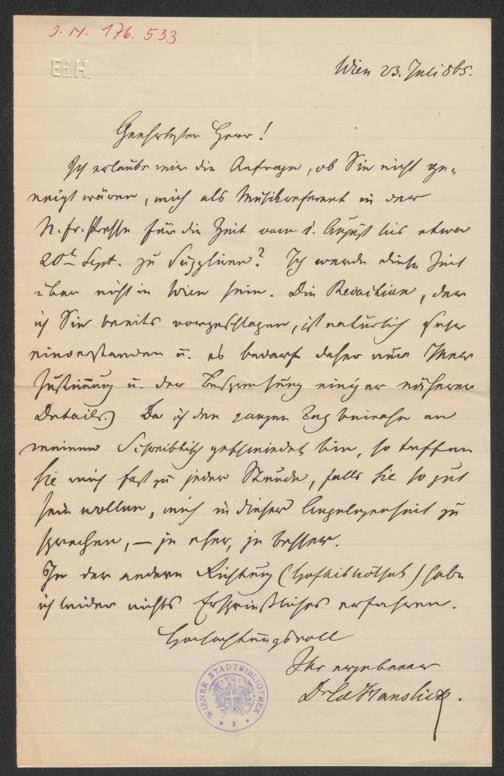 J. N. 176.533
Ed. H.
Wien 23. Juli 865.
Geehrtester Herr!
Ich erlaube mir die Anfrage, ob Sie nicht ge-
neigt wären, mich als Musikreferent in der
N. fr. Presse für die Zeit vom 1. August bis etwa
20t Sept. zu suppliren? Ich werde diese Zeit
über nicht in Wien sein. Die Redaction, der
ich Sie bereits vorgeschlagen, ist natürlich sehr
einverstanden u. es bedarf daher nur Ihrer
Zustimung u. der Besprechung einiger näherer
Details.) Da ich den ganzen Tag beinahe an
meinen Schreibtisch geschmiedet bin, so treffen
Sie mich fast zu jeder Stunde, falls Sie so gut
sein wollen, mich in dieser Angelegenheit zu
sprechen, – je eher, je besser.
In der andern Richtung (Hofbibliothek) habe
ich leider nichts Ersprießliches erfahren.
Hochachtungsvoll
Ihr ergebener
Dr Ed Hanslick.
WIENER STADTBIBLIOTHEK